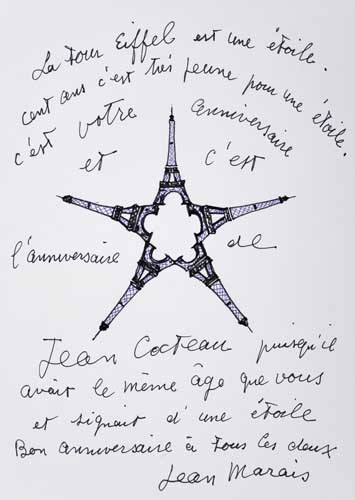 La tour Eiffel est une étoile.
cent ans c'est très jeune pour une étoile.
c'est votre anniversaire
et c'est
l'anniversaire de
Jean Cocteau puisqu'il
avait le même âge que vous
et signait d'une étoile
Bon anniversaire à tous les deux
Jean Marais